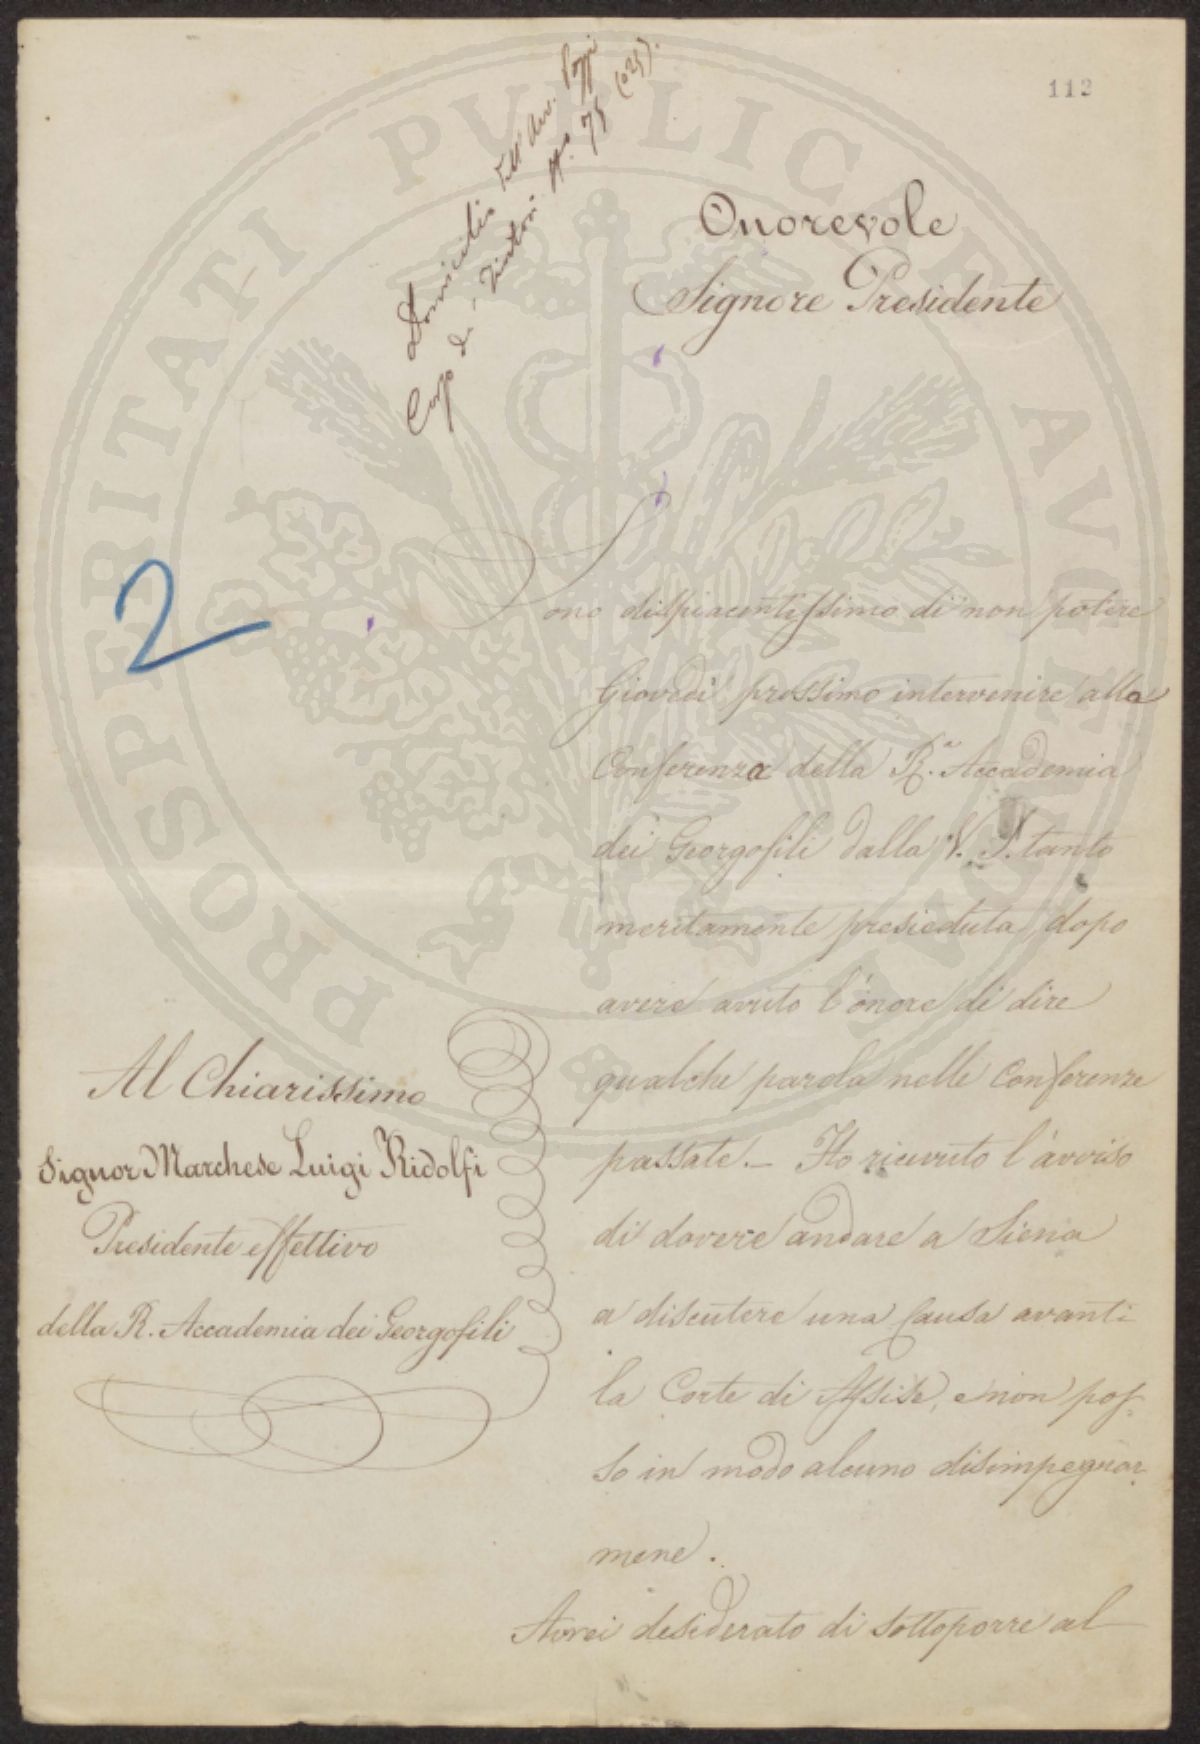 112
Domicilio dell'Avv. Poggi
Corso de' Tintori No. 75
Onorevole
Signore Presidente
2
Sono dispiacentissimo di non potere
Giovedi prossimo intervenire alla
Conferenza della R.a Accademia
dei Georgofili dalla V. S. tanto
meritamente presieduta, dopo
avere avuto l'onore di dire
qualche parola nelle Conferenze
passate. — Ho ricevuto l'avviso
di dovere andare a Siena
a discutere una Causa avanti
la Corte di Assise, e non pos-
so in modo alcuno disimpegnar-
mene.
Avrei desiderato di sottoporre al
Al Chiarissimo
Signor Marchese Luigi Ridolfi
Presidente effettivo
della R. Accademia dei Georgofili
PROSPERITATI PUBLICAE AVGENDAE